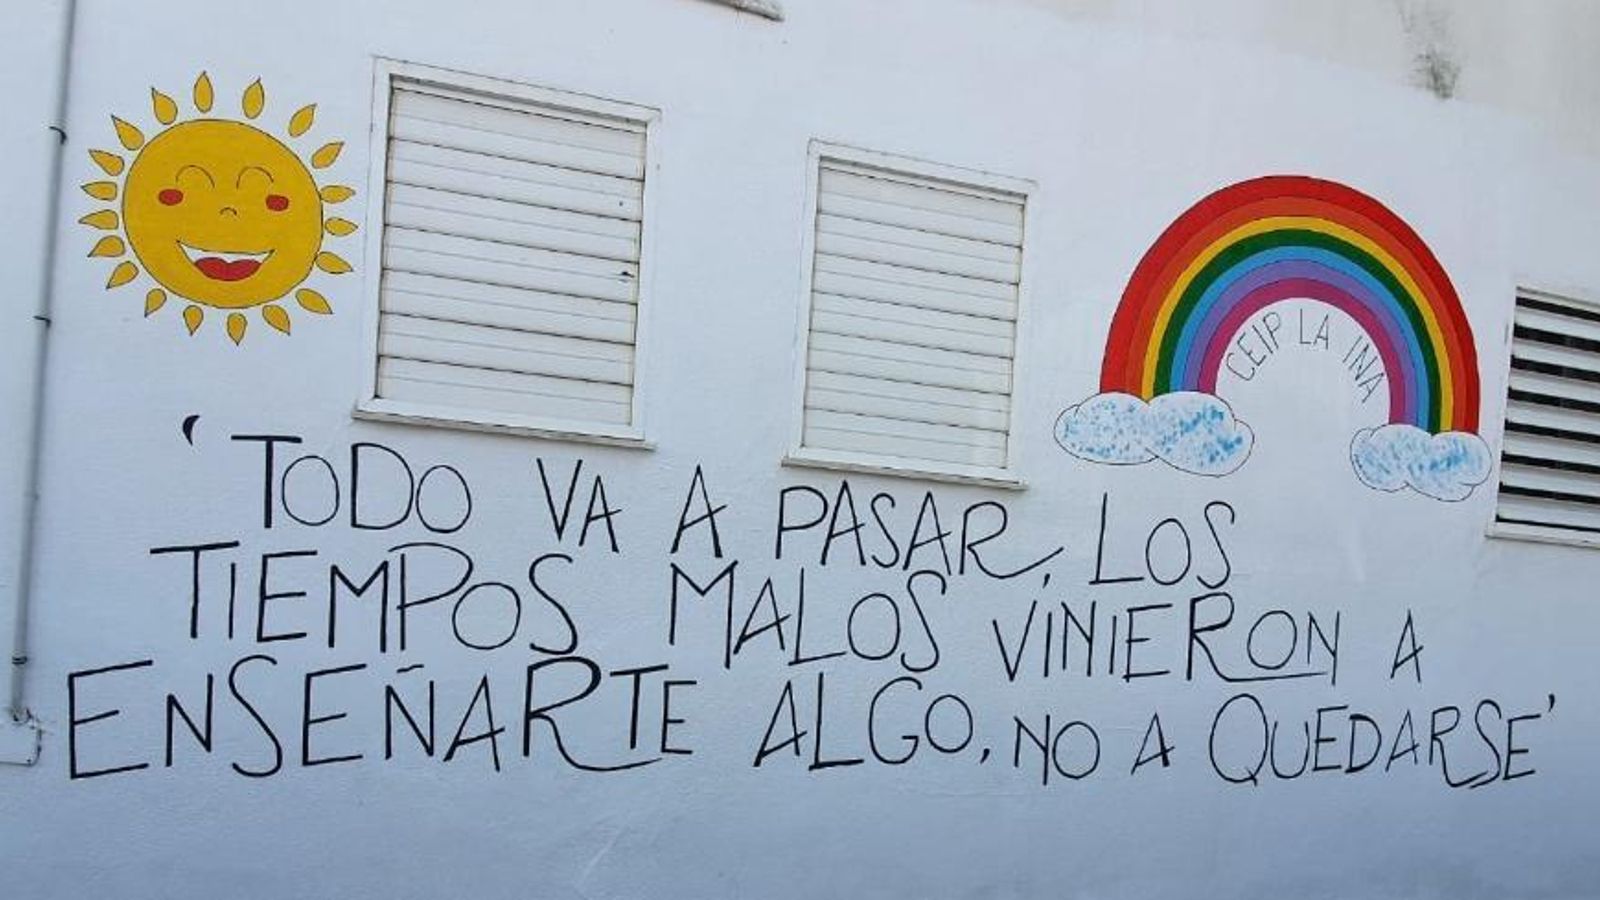 CEIP LA INA
'TODO VA A PASAR, LOS
TIEMPOS MALOS VINIERON A
ENSEÑARTE ALGO, NO A QUEDARSE'